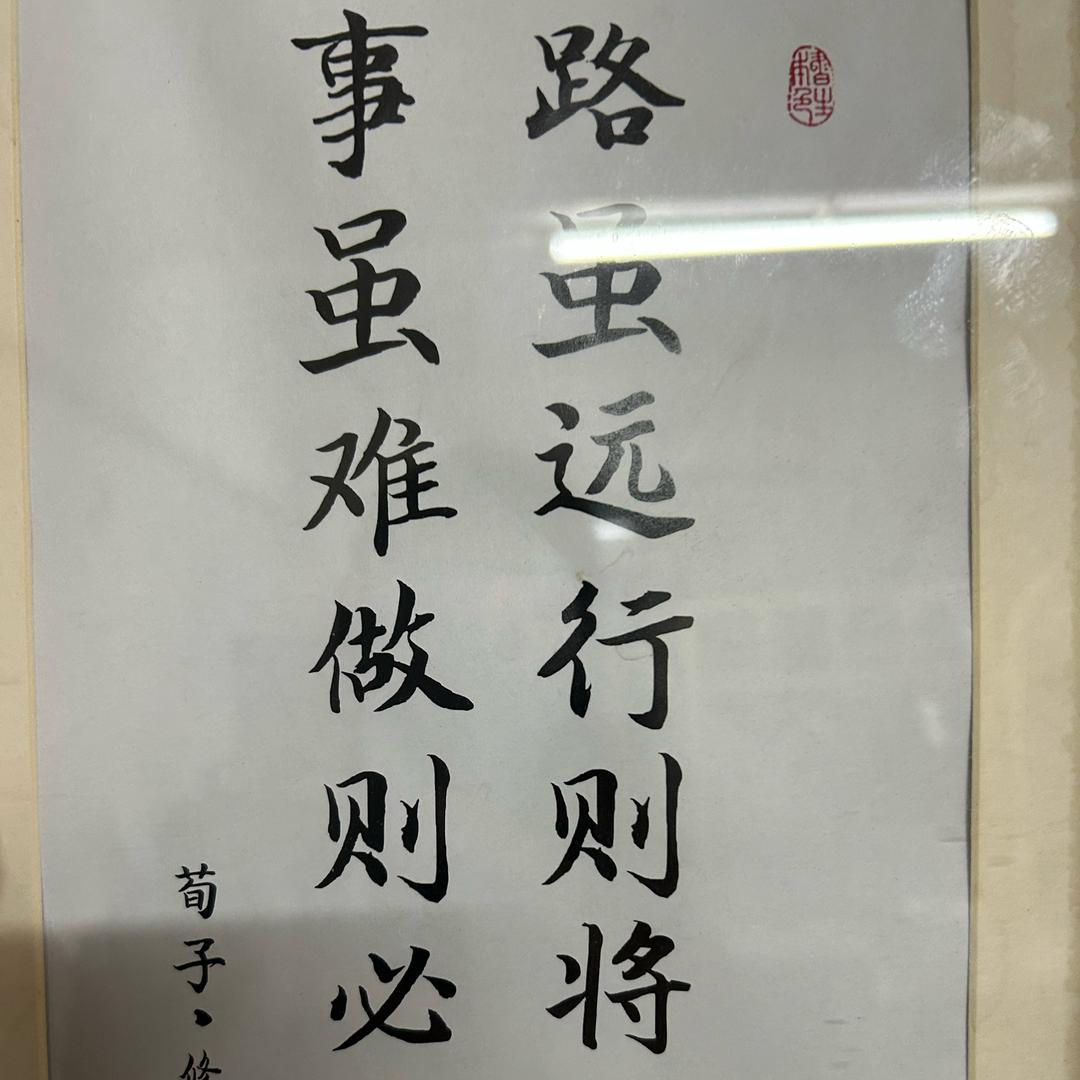 路虽远行则将
事虽难做则必
荀子、修